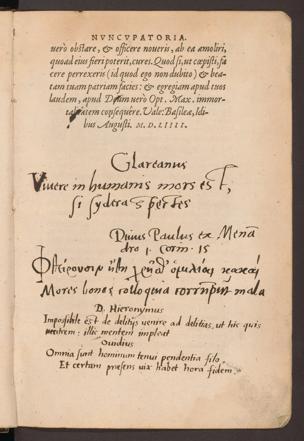 NVNCVPATORIA.
verò obstare, & officere noveris, ab ea amoliri,
quoad eius fieri poterit, cures. Quod si, ut cœpisti, fa
cere perrexeris (id quod ego non dubito) & bea-
tam tuam patriam facies: & egregiam apud tuos
laudem, apud Deum verò Opt. Max. immor-
talitatem consequêre. Vale: Basileæ, Idi-
bus Augusti. M. D. LIIII.
Glareanus
Vivere in humanis mors est,
si sydera spectes
Diuus Paulus ex Menā
dro 1. Corin. 15
Φθείρουσιν ἤθη χρῆσθ' ὁμιλίαι κακαί
Mores bonos colloquia corrūpunt mala
D. Hieronymus
Impossibile est de delitijs venire ad delitias, ut hic quis
ventrem: illic mentem impleat
Ouidius
Omnia sunt hominum tenui pendentia filo
Et certam præsens vix habet hora fidem.